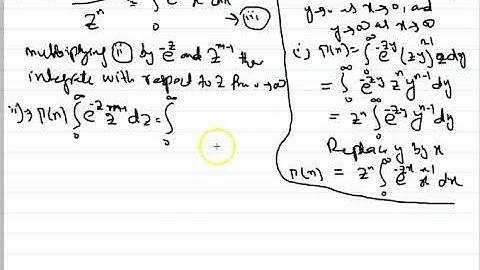 z^n
∫ e x dx → (iii)
0
multiplying (ii) by e^-z and z^m-1 the
integrate with respect to z from 0→∞
ii)→ Γ(n) ∫_0^∞ e^-z z^m-1 dz = ∫_0^∞
y→0 as x→0, and
y→∞ as x→∞
i) Γ(n) = ∫_0^∞ e^-zy (zy)^n-1 z dy
= ∫_0^∞ e^-zy z^n y^n-1 dy
= z^n ∫_0^∞ e^-zy y^n-1 dy
Replace y by x
Γ(n) = z^n ∫_0^∞ e^-zx x^n-1 dx